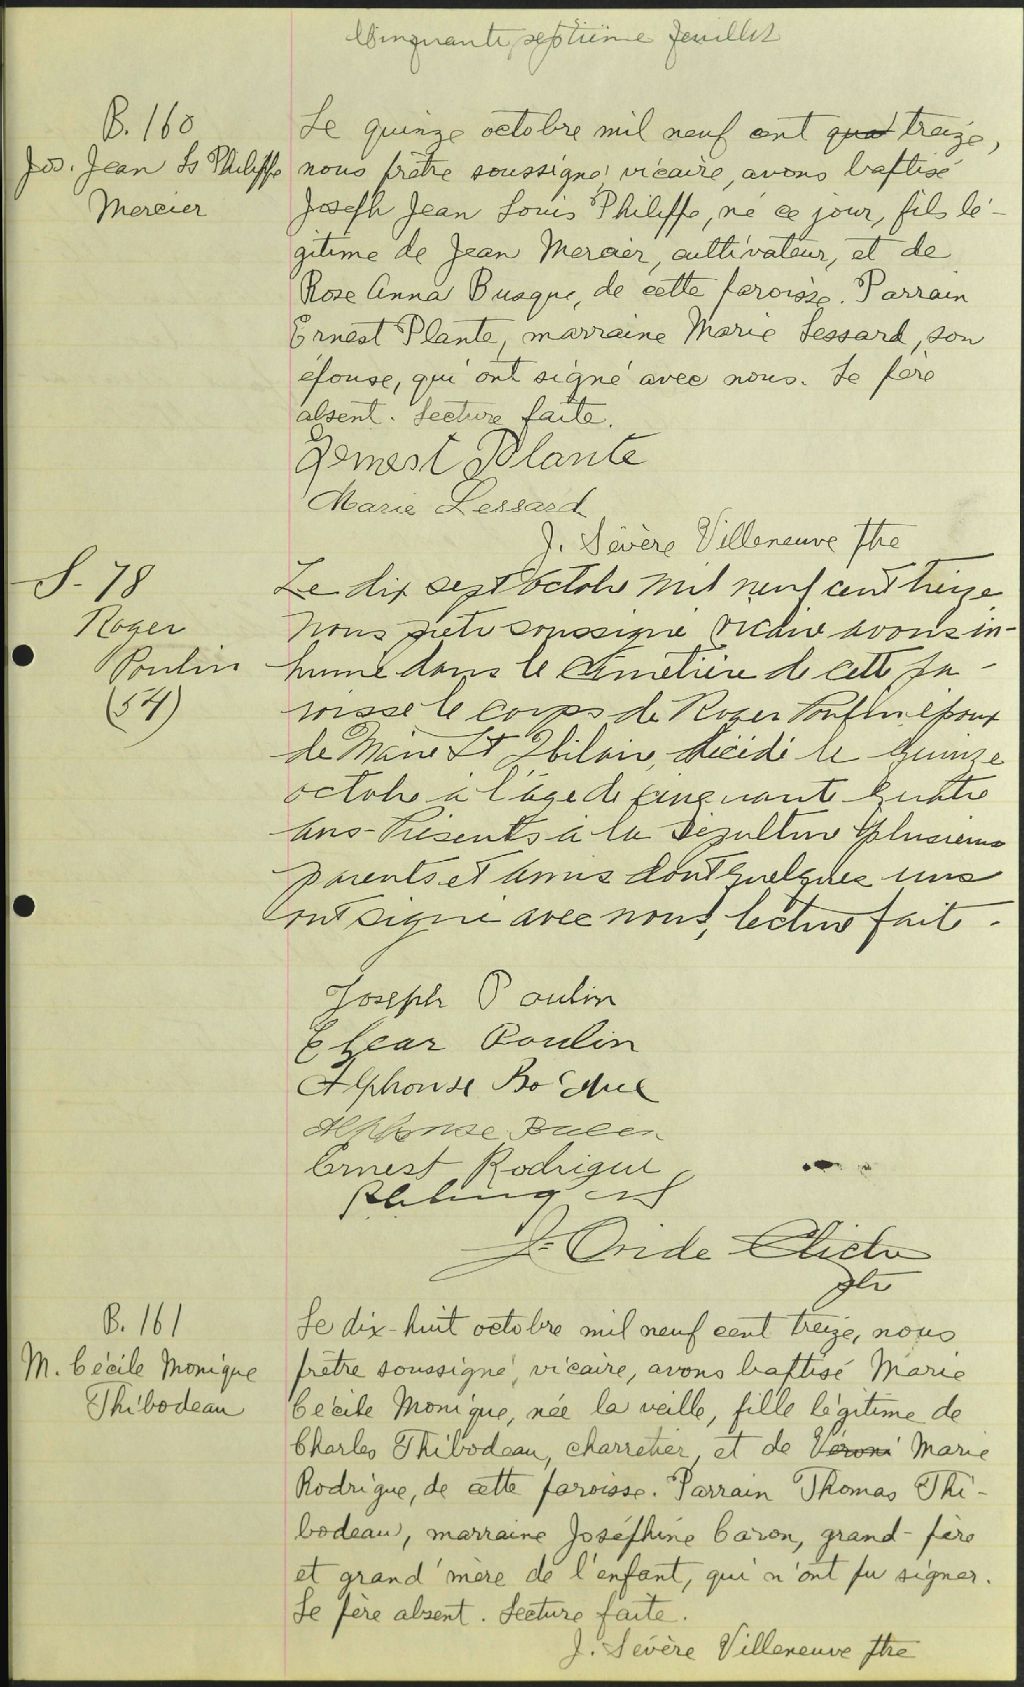 Cinquante septième feuillet
B. 160
Jos. Jean Ls Philippe
Mercier
Le quinze octobre mil neuf cent qua treize,
nous prêtre soussigné vicaire, avons baptisé
Joseph Jean Louis Philippe, né ce jour, fils lé-
gitime de Jean Mercier, cultivateur, et de
Rose Anna Busque, de cette paroisse. Parrain
Ernest Plante, marraine Marie Lessard, son
épouse, qui ont signé avec nous. Le père
absent. Lecture faite.
Ernest Plante
Marie Lessard
J. Sévère Villeneuve ptre
S. 78
Roger
Poulin
(54)
Le dix sept octobre mil neuf cent treize
nous prêtre soussigné vicaire avons in-
humé dans le cimetière de cette pa-
roisse le corps de Roger Poulin époux
de Marie St Hilaire, décédé le quinze
octobre à l'âge de cinquante quatre
ans. Présents à la sépulture plusieurs
parents et amis dont quelques uns
ont signé avec nous, lecture faite.
Joseph Poulin
Elzear Poulin
Alphonse
Alphonse
Ernest Rodrigue
J. Ovide Cliche
ptr
B. 161
M. Cécile Monique
Thibodeau
Le dix-huit octobre mil neuf cent treize, nous
prêtre soussigné, vicaire, avons baptisé Marie
Cécile Monique, née la veille, fille légitime de
Charles Thibodeau, charretier, et de Véroni Marie
Rodrigue, de cette paroisse. Parrain Thomas Thi-
bodeau, marraine Joséphine Caron, grand-père
et grand'mère de l'enfant, qui n'ont pu signer.
Le père absent. Lecture faite.
J. Sévère Villeneuve ptre